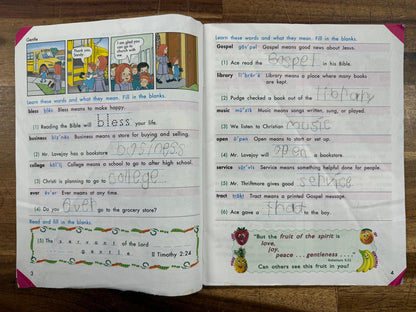 Gentle
Thank you, Sandy.
I am glad you can go to church with me.
Learn these words and what they mean. Fill in the blanks.
bless blĕs Bless means to make happy.
(1) Reading the Bible will bless your life.
business Business means a store for buying and selling.
(2) Mr. Lovejoy has a bookstore business
college College means a school to go to after high school.
(3) Christi is planning to go to college
ever Ever means at any time.
(4) Do you ever go to the grocery store?
Read and fill in the blanks.
(5) The servant of the Lord
gentle II Timothy 2:24
3
Learn these words and what they mean. Fill in the blanks.
Gospel Gospel means good news about Jesus.
(1) Ace read the Gospel in his Bible.
library Library means a place where many books
are kept.
(2) Pudge checked a book out of the library
music Music means songs written, sung, or played.
(3) We listen to Christian music
open Open means to start or set up.
(4) Mr. Lovejoy will open a bookstore.
service Service means something helpful done for people.
(5) Mr. Thriftmore gives good service
tract Tract means a printed Gospel message.
(6) Ace gave a to the boy.
"But the fruit of the spirit is
love,
joy,
peace . . . gentleness . . . ."
Galatians 5:22
Can others see this fruit in you?
4